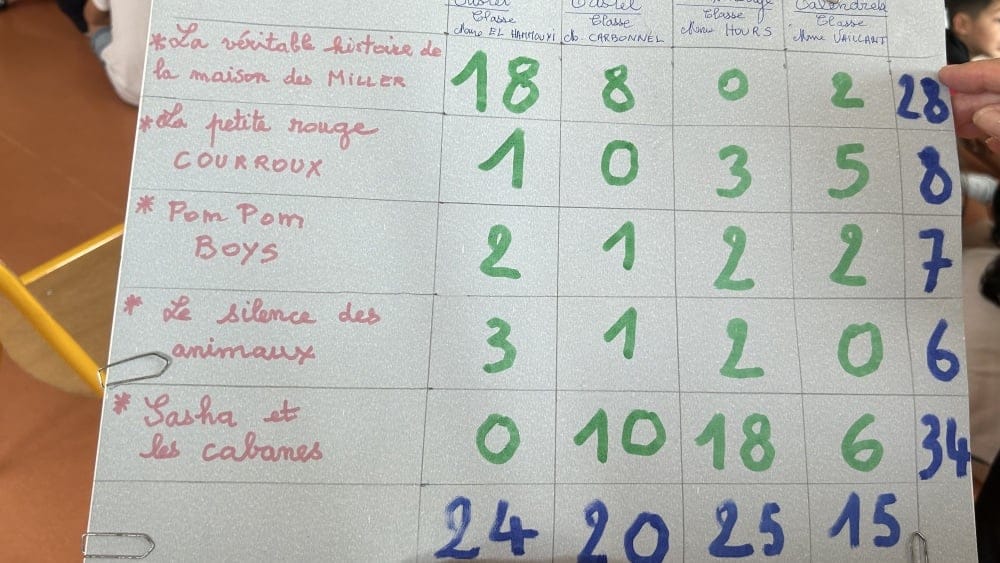 Castel Castel Calendreta
Classe Classe Classe Classe
Mme EL HAMMOUXI M. CARBONNEL Mme HOURS Mme VAILLANT
* La véritable histoire de
la maison des MILLER 18 8 0 2 28
* La petite rouge
COURROUX 1 0 3 5 8
* POM POM
BOYS 2 1 2 2 7
* Le silence des
animaux 3 1 2 0 6
* Sasha et
les cabanes 0 10 18 6 34
24 20 25 15